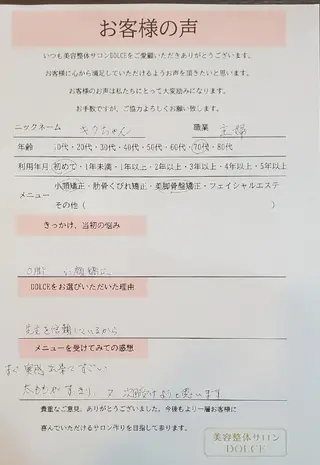 お客様の声
いつも美容整体サロンDOLCEをご愛顧いただきありがとうございます。
お客様に心から満足していただけるようお声を頂きたいと思います。
お客様のお声は私たちにとって大変励みになります。
お手数ですが、ご協力よろしくお願い致します。
ニックネーム ちゃん 職業 主婦
年齢 ・10代・20代・30代・40代・50代・60代・70代・80代
利用年月 初めて・1年未満・1年以上・2年以上・3年以上・4年以上・5年以上
メニュー ・小顔矯正・肋骨くびれ矯正・美脚骨盤矯正・フェイシャルエステ
その他( )
きっかけ、当初の悩み
O脚
DOLCEをお選びいただいた理由
先生を信頼しているから
メニューを受けてみての感想
実感出来てすごい
太ももがすきり と思います
貴重なご意見、ありがとうございました。今後もより一層お客様に
喜んでいただけるサロン作りを目指して参ります。
美容整体サロン
DOLCE